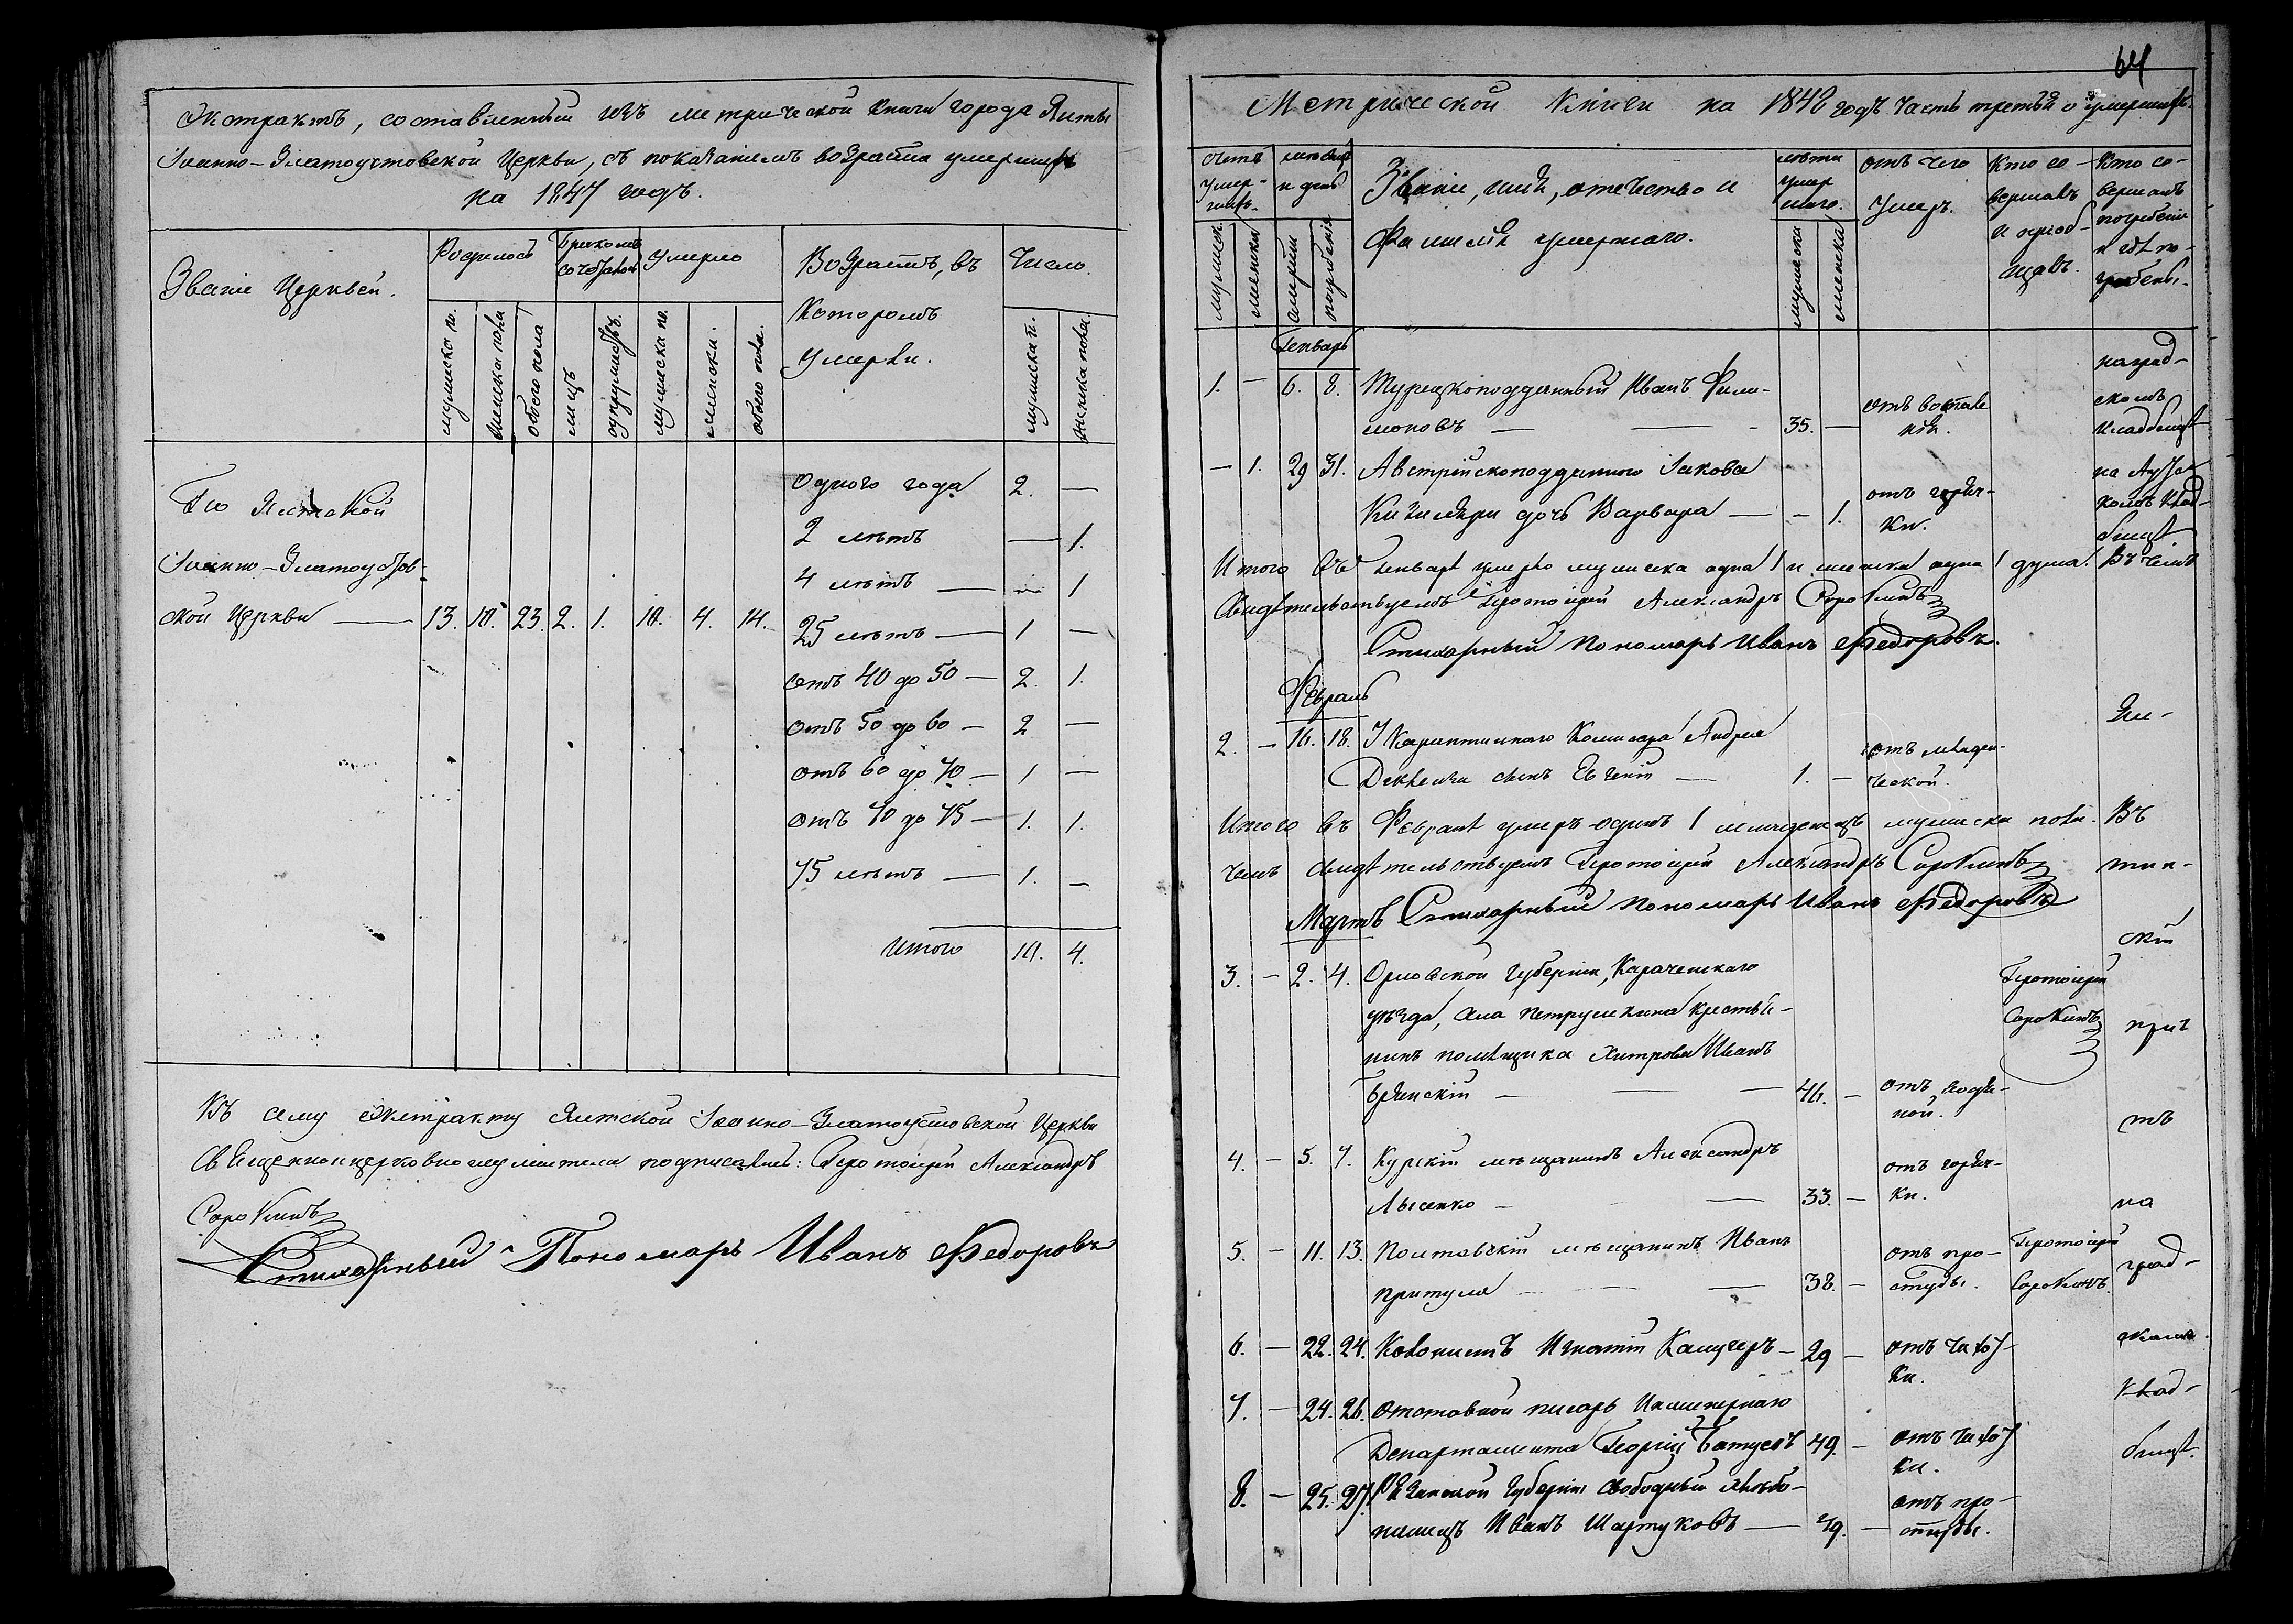 Экстрактъ, составленный изъ метрической книги города Ялты
Іоанно-Златоустовской Церкви, съ показаніемъ возраста умершихъ
на 1847 годъ.
Званіе Церквей.
Родилось
Бракомъ сочетано
Умерло
Возрастъ, въ
Которомъ
Умерли.
Число
мужеска по.
женска пола
обоего пола
лицъ
супружествъ.
мужеска по.
женска.
обоего пола.
мужеска п.
женска пола.
По Ялтской
Іоанно-Златоустов-
ской Церкви — 13. 10. 23. 2. 1. 10. 4. 14.
Одного года 2. —
2 лѣтъ — 1.
4 лѣтъ — — 1
25 лѣтъ — 1 —
отъ 40 до 50 — 2. 1.
отъ 50 до 60 — 2 —
отъ 60 до 70 — 1 —
отъ 70 до 75 — 1. 1.
75 лѣтъ — 1. —
Итого 10. 4.
Къ сему экстракту Ялтской Іоанно-Златоустовской Церкви
Священноицерковнослужители подписались: Протоіерей Александръ
Сорокинъ
Стихарный Пономарь Иванъ Федоровъ
64
Метрической Книги на 1848 годъ Часть третья о умершихъ.
счетъ умер-шихъ.
мужеска
женска
мѣсяцъ и день
смерти
погребенія
Званіе, имя, отечество и
Фамилія умершаго.
лѣта умер шаго.
мужеска
женска
отъ чего
умеръ.
Кто со-
вершалъ
и пріоб-
щалъ.
Кто со-
вершалъ
погребеніе
и гдѣ по-
гребены.
Генварь
1. — 6. 8. Турецкоподданный Иванъ Фили-
моновъ — — 35. —
на град-
скомъ
кладбищѣ
— 1. 29 31. Австрійскоподданнаго Іакова
дочь Варвара — — 1. отъ горяч-
ки.
на
Клад-
бищѣ
Итого въ Генварѣ умерло мужеска одна 1 и женска одна 1 душа. Въ чемъ
Свидѣтельствуемъ Протоіерей Александръ Сорокинъ
Стихарный Пономарь Иванъ Федоровъ.
Февраль
2. — 16. 18. Карантиннаго Комисара Андрея
сынъ Евгеній — 1. — отъ младен-
ческой.
Итого въ Февралѣ умеръ одинъ 1 младенецъ мужеска пола. Въ
чемъ свидѣтельствуемъ Протоіерей Александръ Сорокинъ
Стихарный Пономарь Иванъ Федоровъ
Мартъ
3. — 2. 4. Орловской Губерніи, Карачевскаго
уѣзда, села Петрушкина Крестья-
нинъ помѣщика Хитрова Иванъ
Брянскій — — 46. — отъ водя-
ной.
Протоіерей
Сорокинъ
4. — 5. 7. Курскій мѣщанинъ Александръ
Лысенко — — 33. — отъ горяч-
ки.
5. — 11. 13. Полтавскій мѣщанинъ Иванъ
Притула — — 38. — отъ про-
студы.
Протоіерей
Сорокинъ.
6. — 22. 24. Колонистъ Игнатій — 29 — отъ чахот-
ки.
7. — 24. 26. Отставной писарь Инженернаго
Департамента Георгій 49. — отъ чахот
ки.
8. — 25. 27. Рязанской Губерніи свободный хлѣбо-
пашецъ Иванъ Шартуковъ — 49. — отъ про-
студы.
Ял-
тин-
скій
причт
тъ
на
град-
скомъ
Клад-
бищѣ.